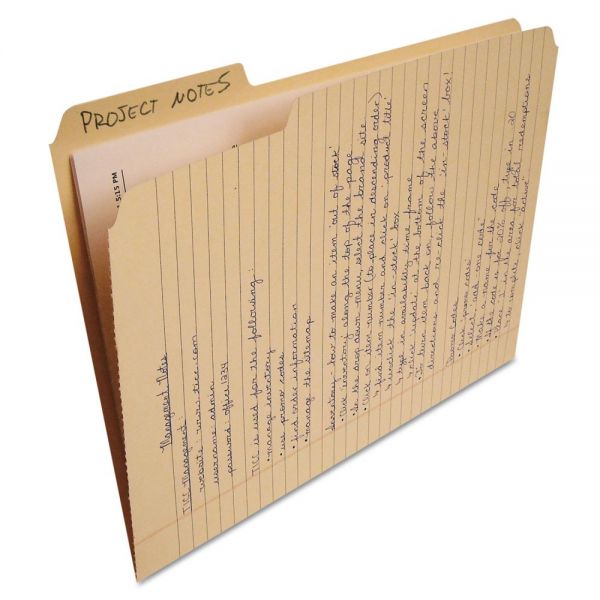 PROJECT NOTES
5:15 PM
Management Notes
TICC Management:
website: www.ticc.com
username: admin
password: office1234
TICC is used for the following:
• manage inventory
• use promo codes
• find order information
• manage the sitemap
Inventory: how to make an item 'out of stock'
• Click inventory along the top of the page
• In the drop down menu, select the brand site
• Click on item number (to place in descending order)
↳ find item number and click on 'product title'
↳ unclick the 'in-stock' box
↳ type in availability time frame
↳ click 'update' at the bottom of the screen
• To turn item back on, follow the above
directions and re-click the 'in-stock' box!
Promo Codes
• Click 'promo codes'
• Select 'add one code'
• Make a name for the code
• If the code is for 20% off, type in 20
• Place '1' in the area for total redemptions
↳ to complete, click 'active'